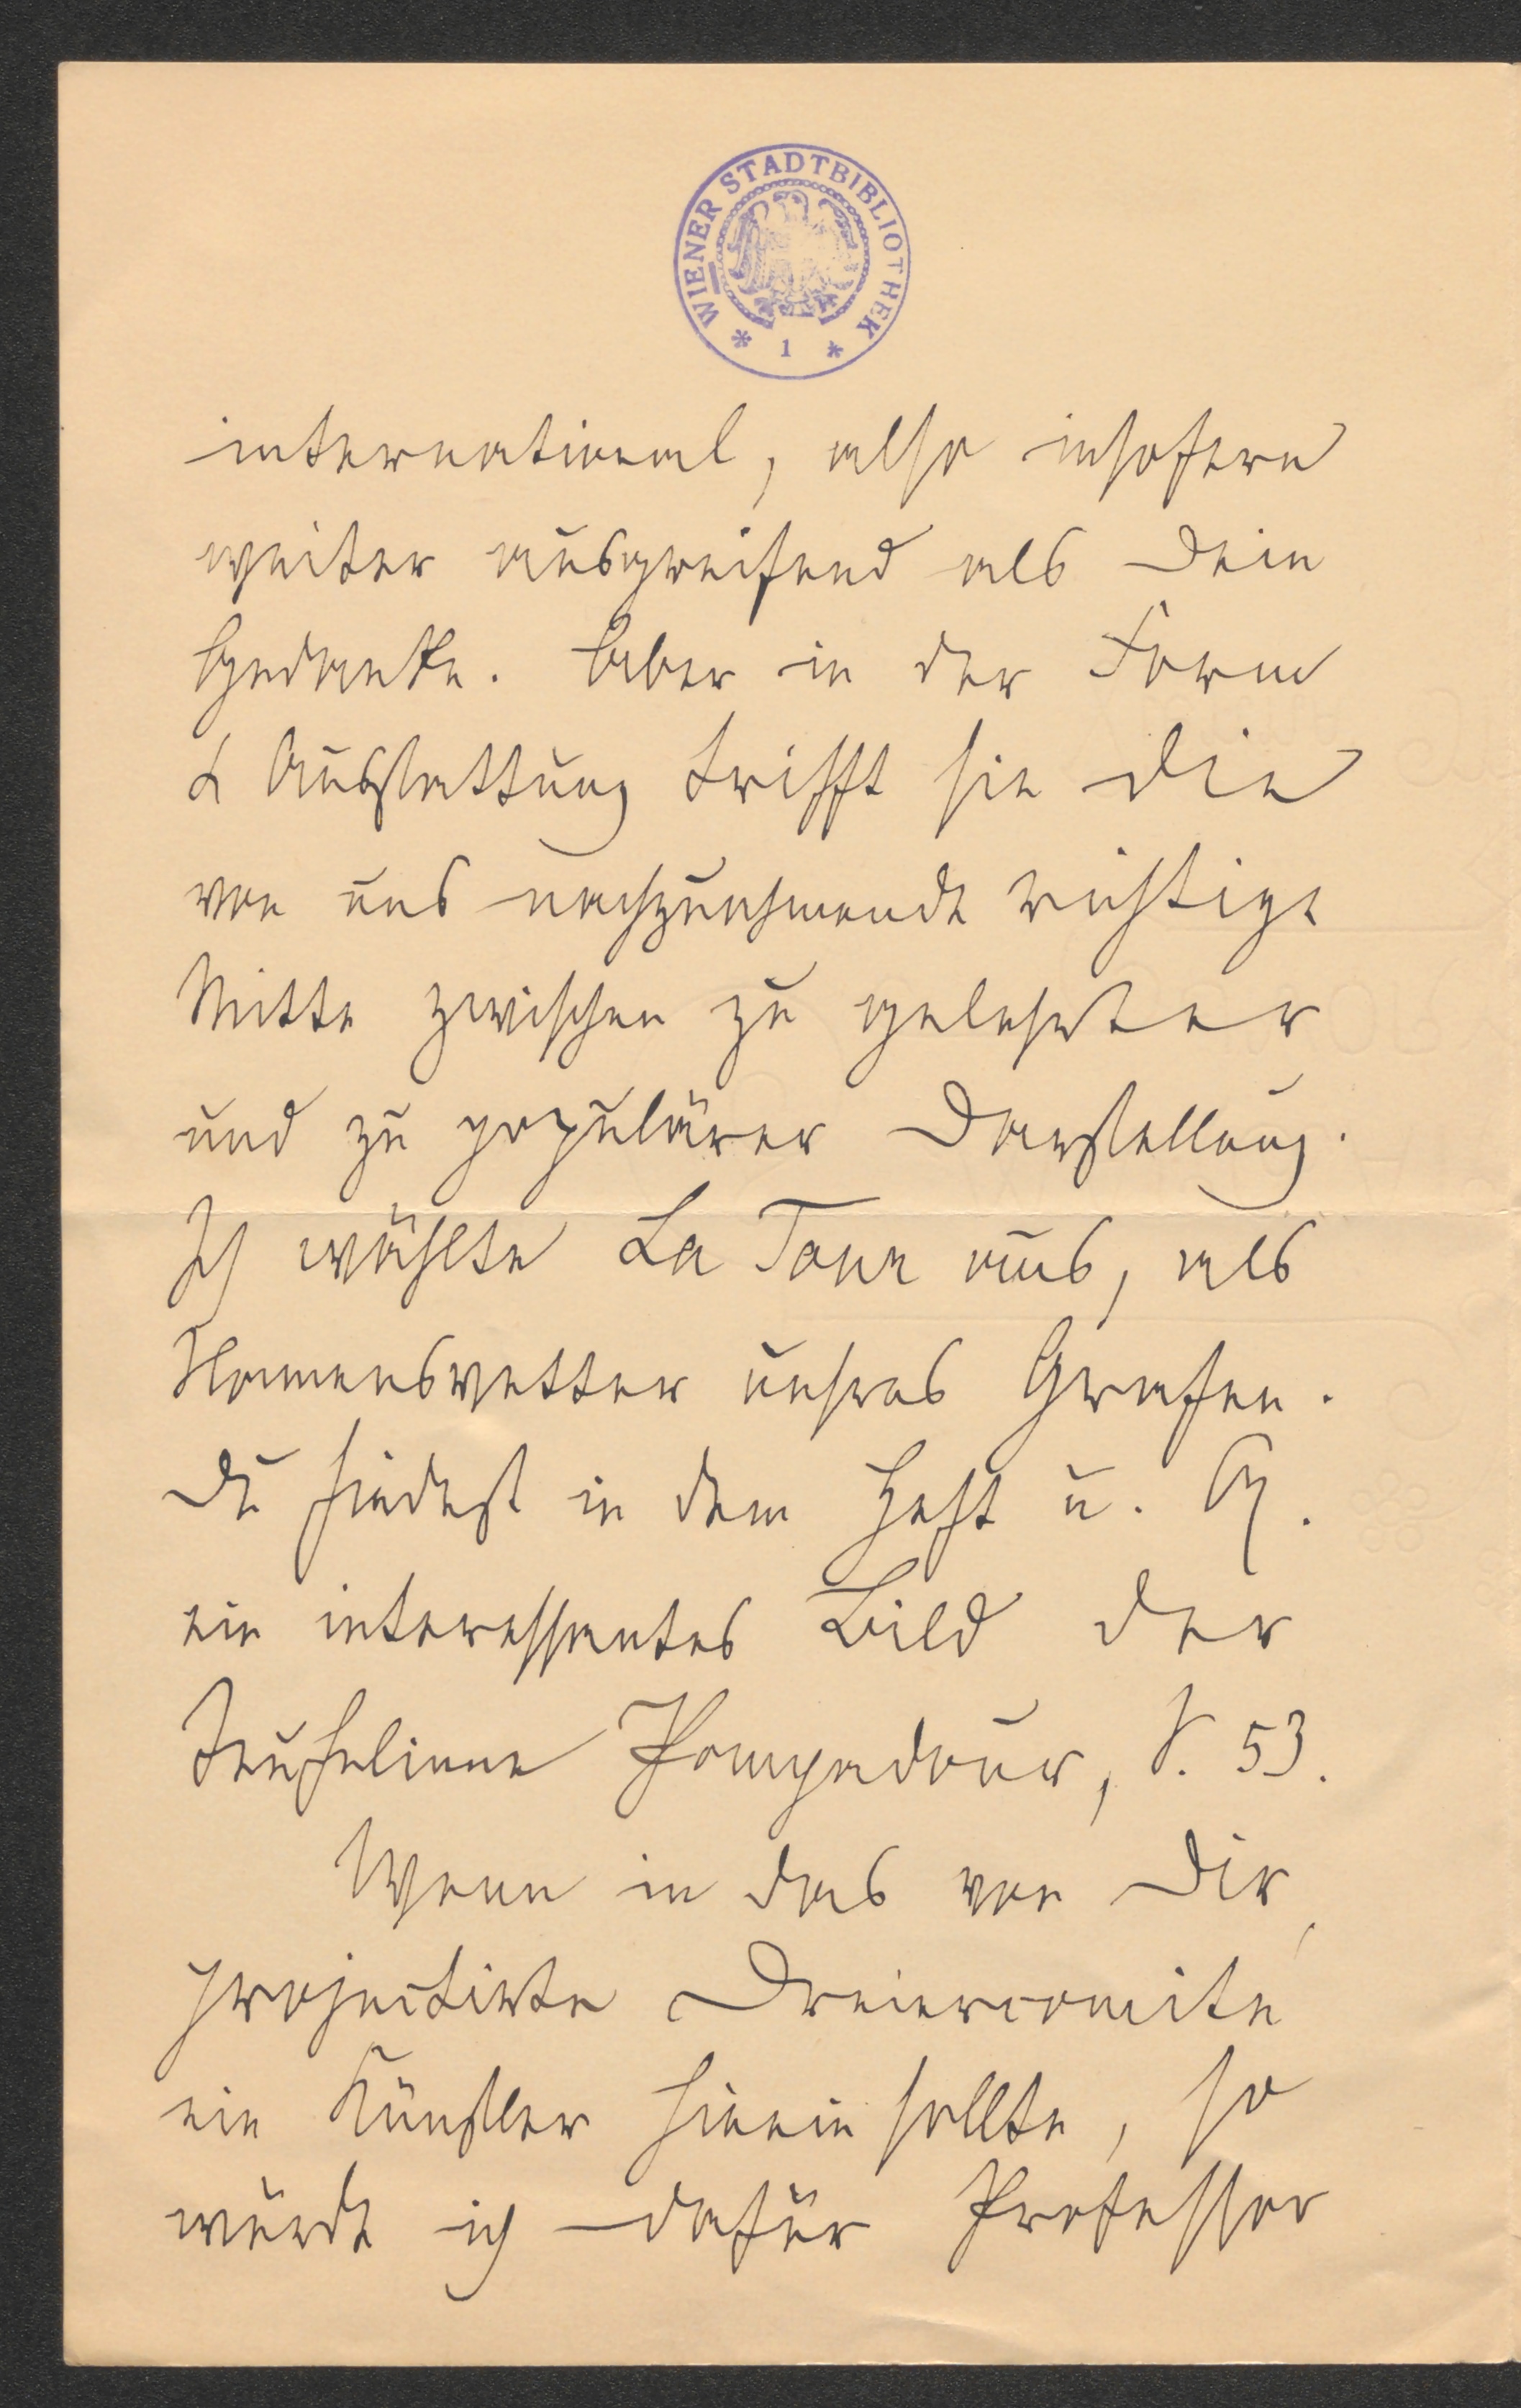 WIENER STADTBIBLIOTHEK
* 1 *
international, also insofern
weiter ausgreifend als Dein
Gedanke. Aber in der Form
& Ausstattung trifft sie die
von uns nachzuahmende richtige
Mitte zwischen zu gelehrter
und zu populärer Darstellung.
Ich wählte La Tour aus, als
Namensvetter unsres Grafen.
Du findest in dem Heft u. A.
ein interessantes Bild der
Teufelinne Pompadour, S. 53.
Wenn in das von Dir
projectirte Dreiercomite
ein Künstler hinein sollte, so
würde ich dafür Professor